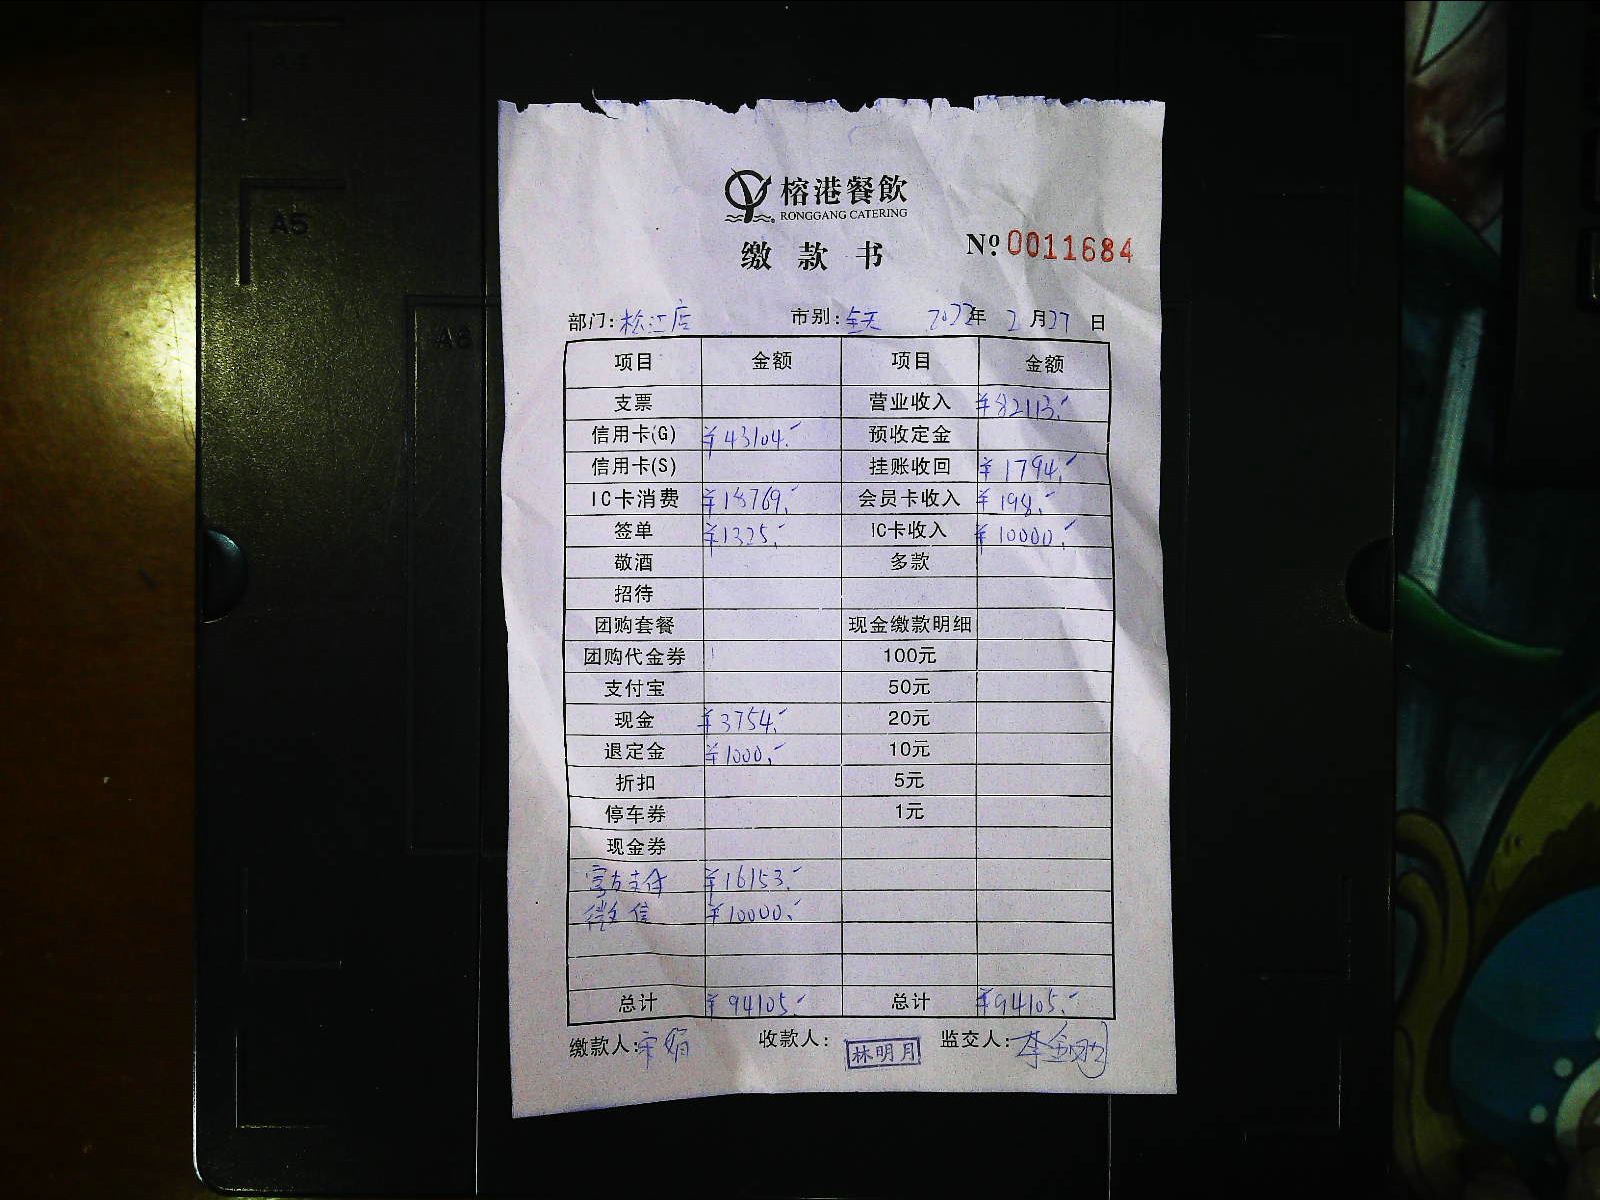 A5
A6
榕港餐飲
RONGGANG CATERING
缴款书 № 0011684
部门:松江店 市别:全天 2022年2月27日
项目 金额 项目 金额
支票 营业收入 ¥82113.-
信用卡(G) ¥43104.- 预收定金
信用卡(S) 挂账收回 ¥1794.-
IC卡消费 ¥18769.- 会员卡收入 ¥198.-
签单 ¥1325.- IC卡收入 ¥10000.-
敬酒 多款
招待
团购套餐 现金缴款明细
团购代金券 100元
支付宝 50元
现金 ¥3754.- 20元
退定金 ¥1000.- 10元
折扣 5元
停车券 1元
现金券
官方支付 ¥16153.-
微信 ¥10000.-
总计 ¥94105.- 总计 ¥94105.-
缴款人:宋娟 收款人:林明月 监交人: